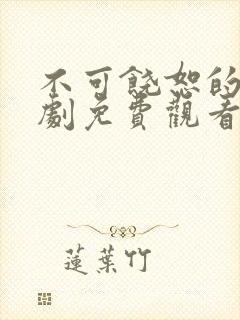 不可饒恕的
劇免費觀看
蓮葉竹